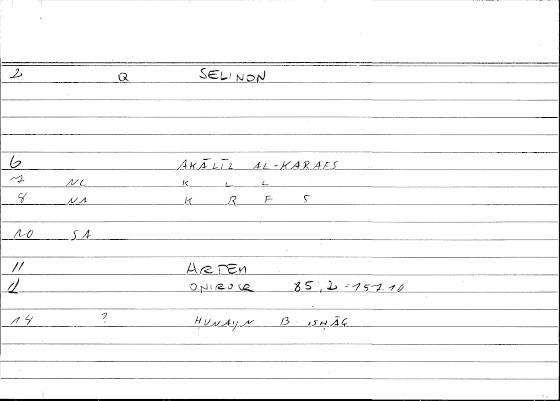 2 Q SELINON
6 AKĀLĪL AL-KARAFS
7 NC K L L
8 NA K R F S
10 SA
11 ARTEM
d ONIROCR 85,2 = 157.10
14 ? ḤUNAYN B. ISḤĀQ